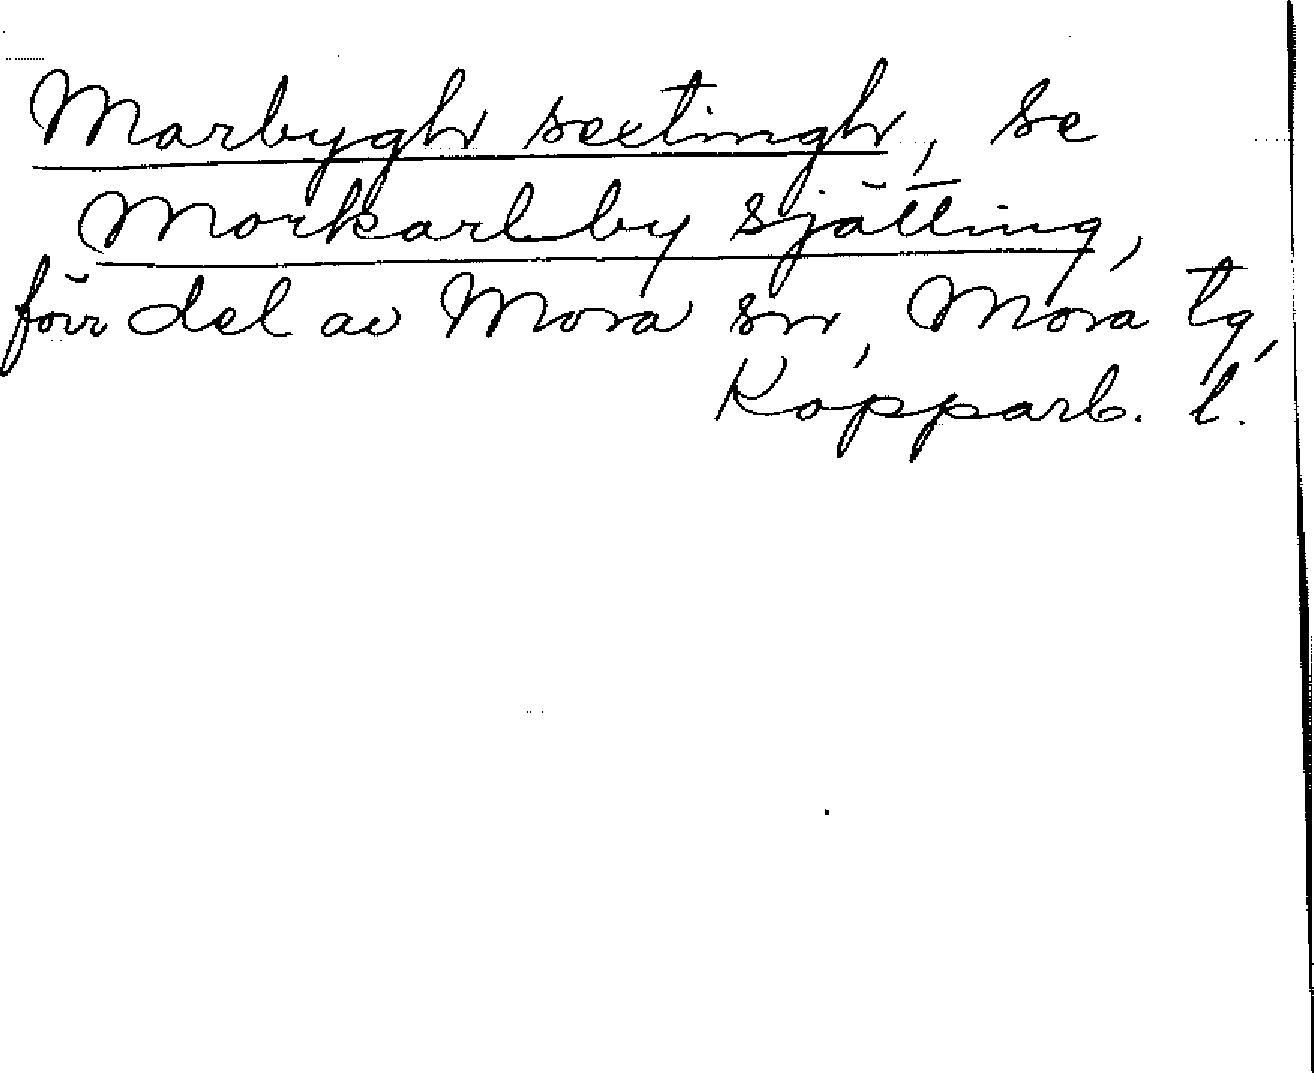 Marbygh sextingh, se
Morkarlby sjätting,
förr del av Mora sn, Mora tg,
Kopparb. l.